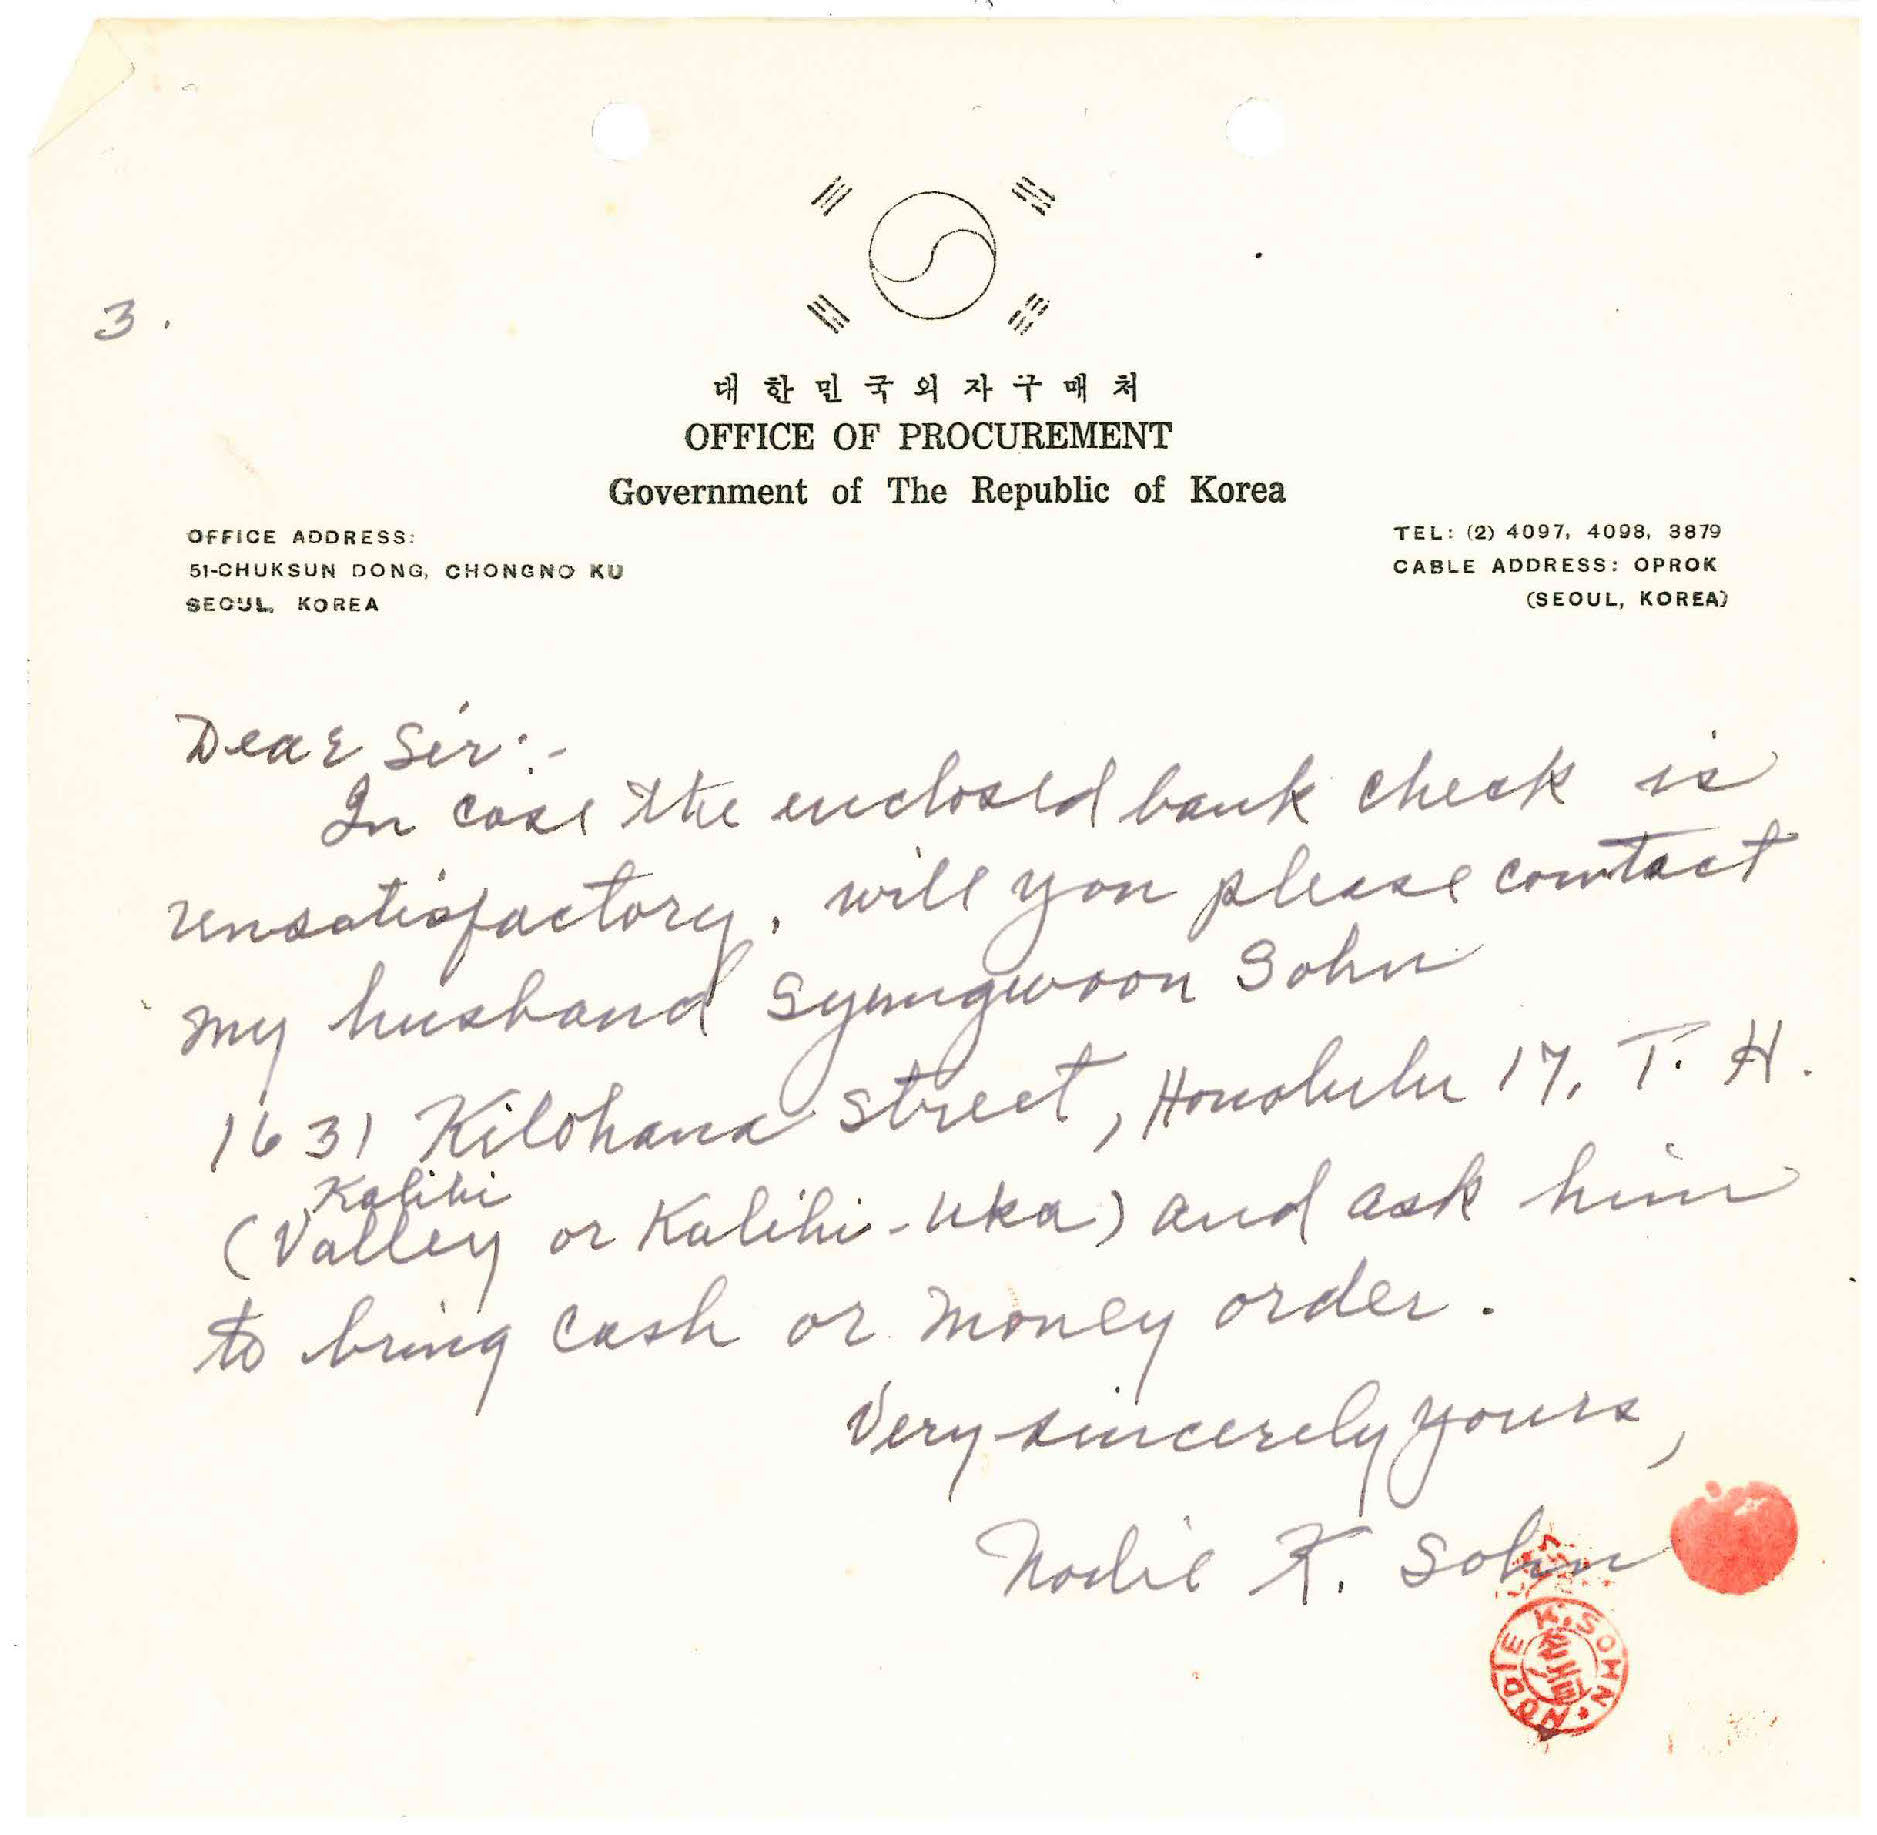 3.
대한민국외자구매처
OFFICE OF PROCUREMENT
Government of The Republic of Korea
OFFICE ADDRESS:
51-CHUKSUN DONG, CHONGNO KU
SEOUL, KOREA
TEL: (2) 4097, 4098, 3879
CABLE ADDRESS: OPROK
(SEOUL, KOREA)
Dear Sir:-
In case the enclosed bank check is
unsatisfactory, will you please contact
my husband Syungwoon Sohn
1631 Kilohana Street, Honolulu 17, T. H.
Kalihi
(Valley or Kalihi-uka) and ask him
to bring cash or money order.
Very sincerely yours,
Nodie K. Sohn
NODIE K. SOHN